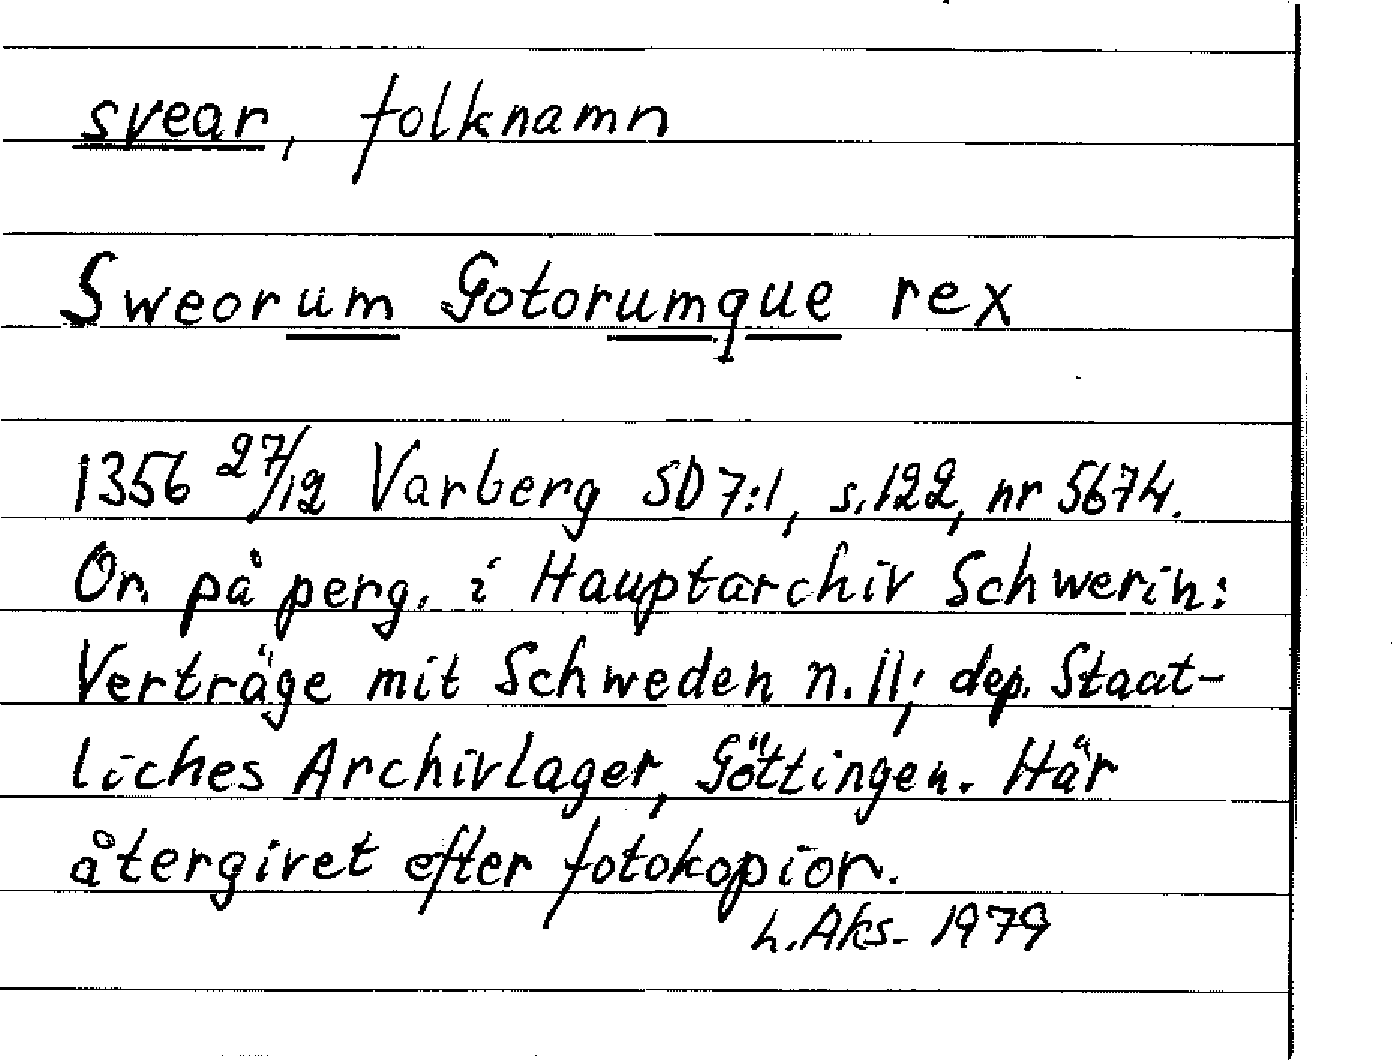 svear, folknamn
Sweorum Gotorumque rex
1356 27/12 Varberg SD 7:1, s. 122, nr 5674.
Or. på perg. i Hauptarchiv Schwerin:
Verträge mit Schweden n. 11; dep. Staat-
liches Archivlager, Göttingen. Här
återgivet efter fotokopior.
L. Aks. 1979